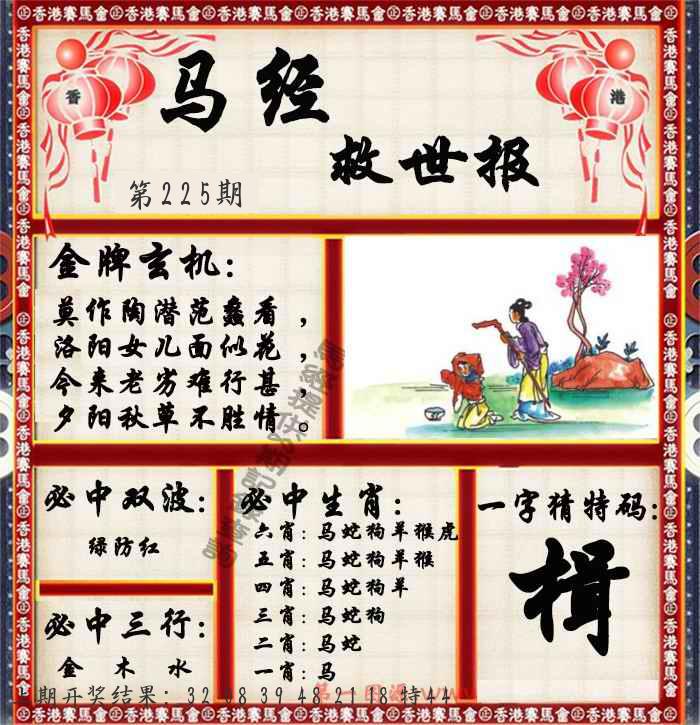 香港賽馬會
香 港
马经
救世报
第225期
金牌玄机：
莫作陶潜范蠡看，
洛阳女儿面似花，
今来老劣难行甚，
夕阳秋草不胜情。
必中双波：
绿防红
必中三行：
金 木 水
必中生肖：
六肖：马蛇狗羊猴虎
五肖：马蛇狗羊猴
四肖：马蛇狗羊
三肖：马蛇狗
二肖：马蛇
一肖：马
一字猜特码：
楫
期开奖结果：32 08 39 48 21 18 特44
第一图源